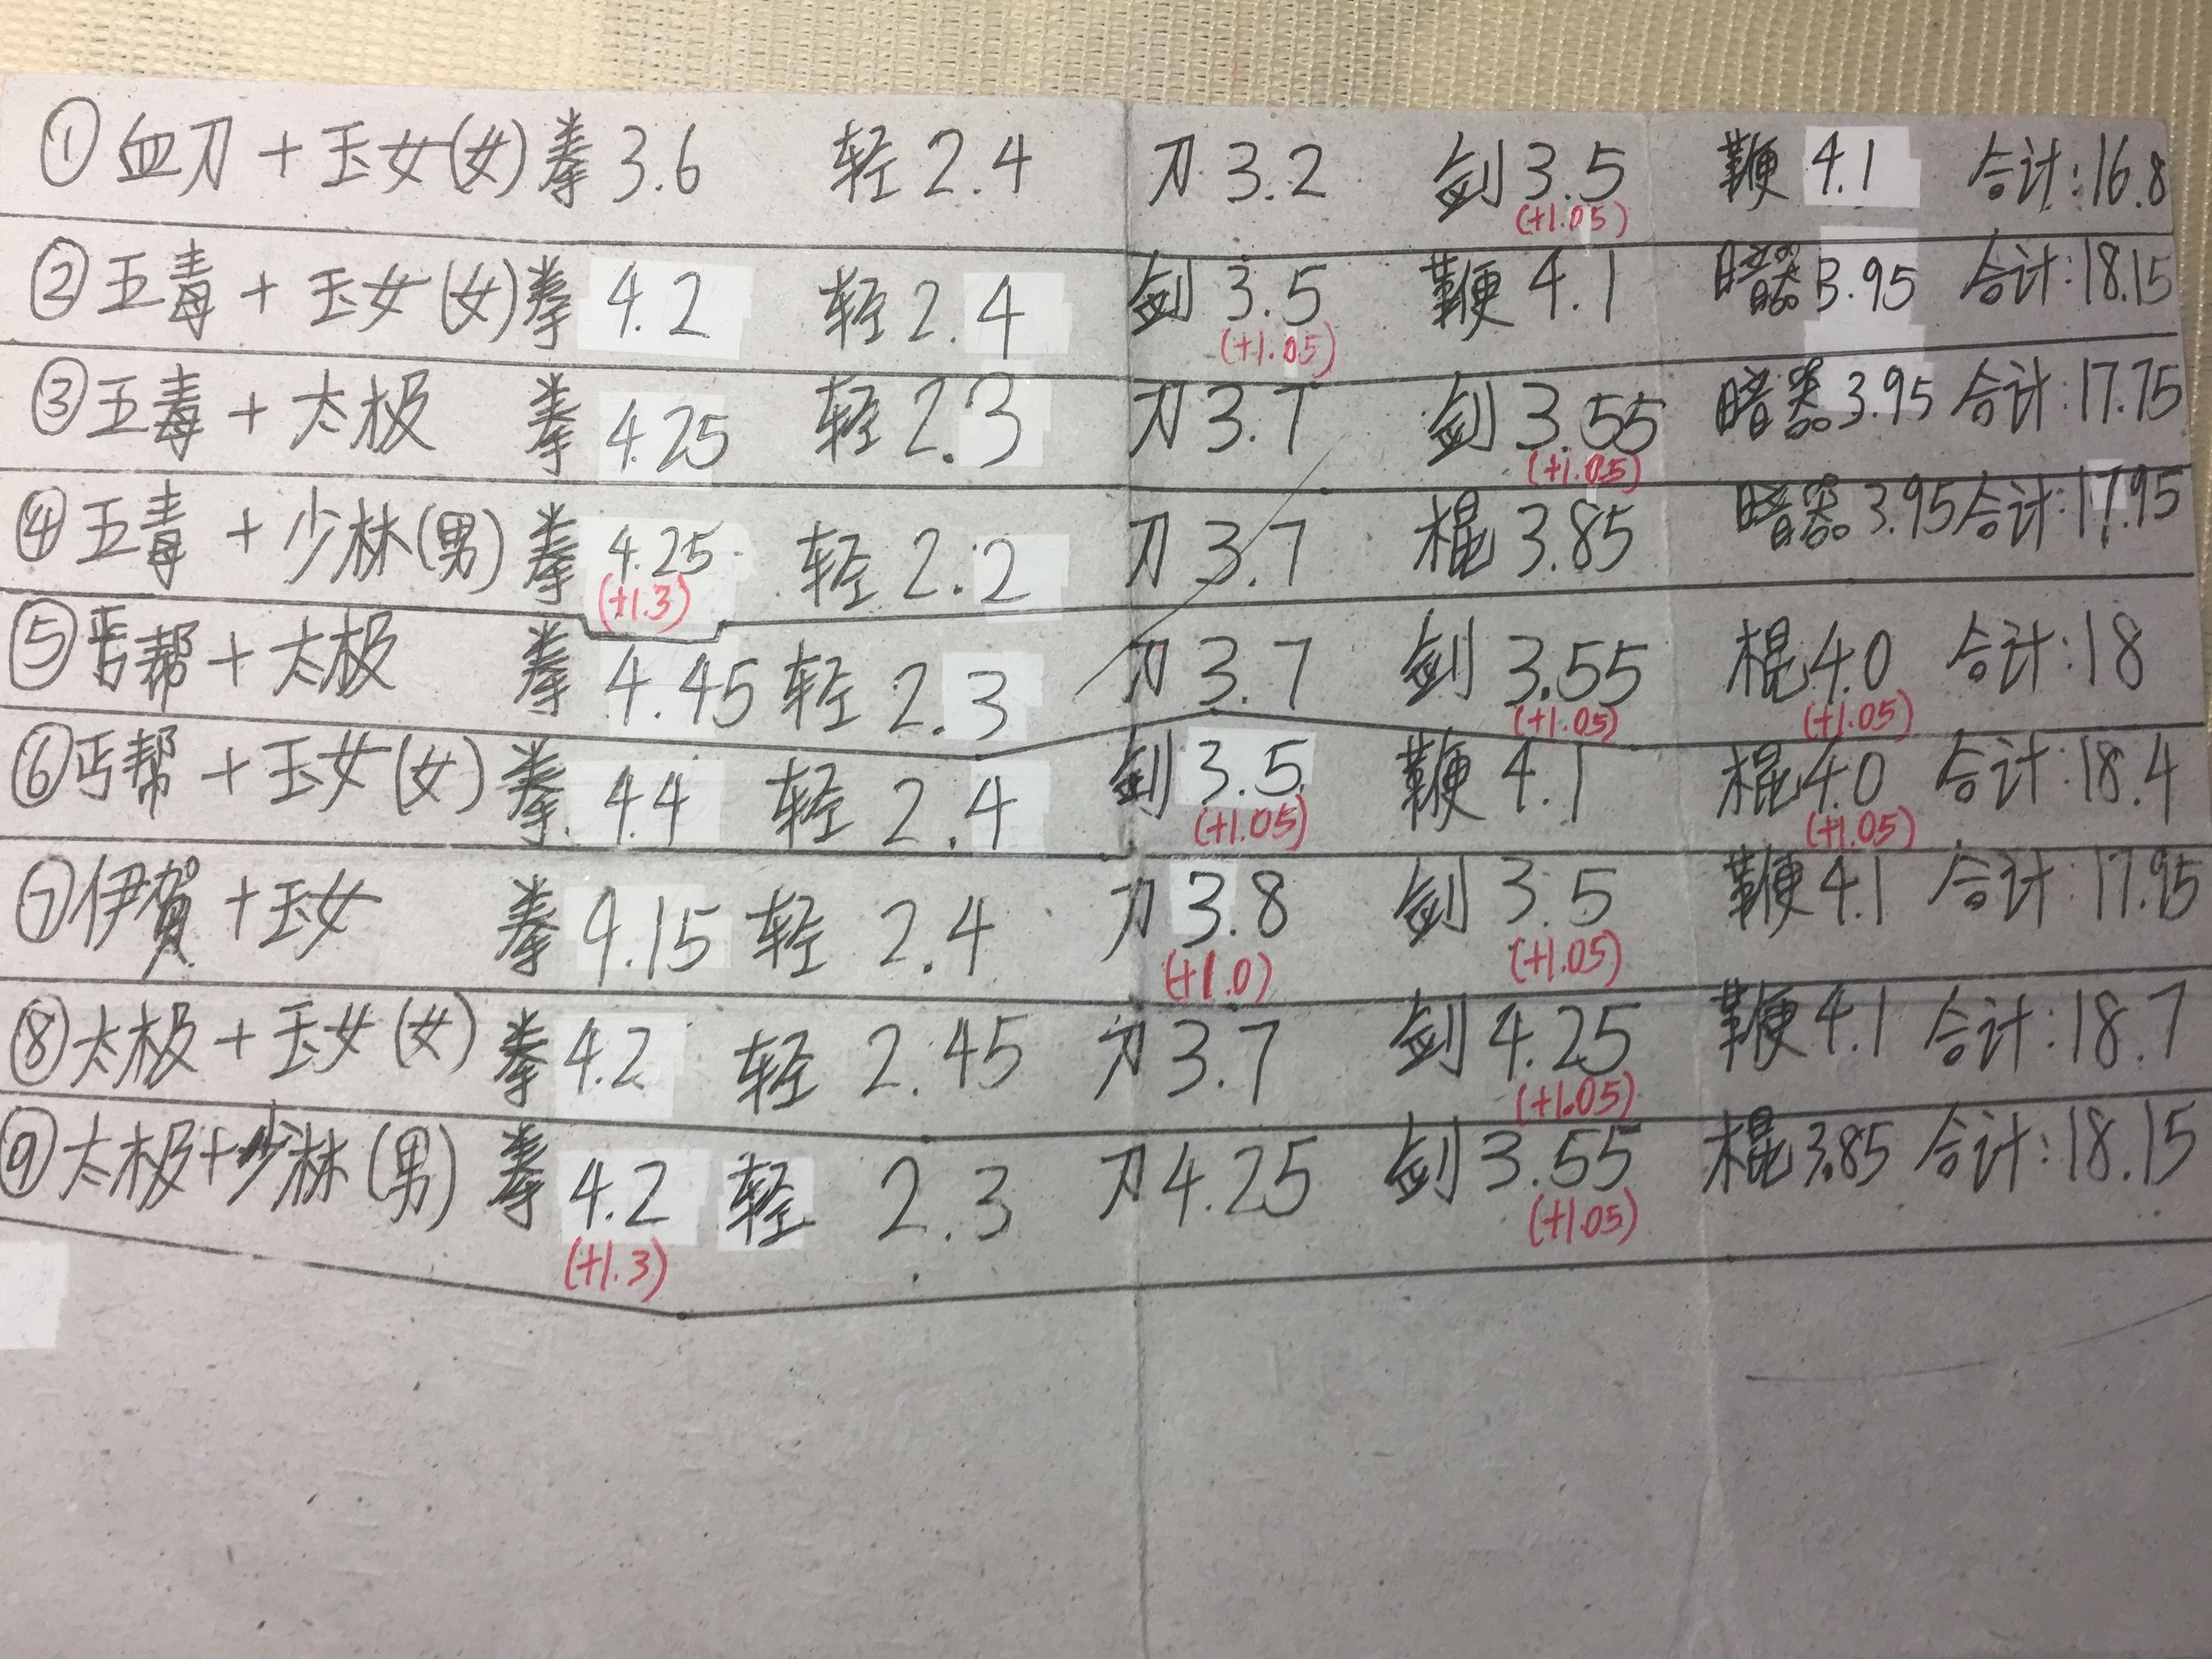 ①血刀+玉女(女) 拳3.6 轻2.4 刀3.2 剑3.5 鞭4.1 合计:16.8
(+1.05)
②五毒+玉女(女) 拳4.2 轻2.4 剑3.5 鞭4.1 暗器3.95 合计:18.15
(+1.05)
③五毒+太极 拳4.25 轻2.3 刀3.7 剑3.55 暗器3.95 合计:17.75
(+1.05)
④五毒+少林(男) 拳4.25 轻2.2 刀3.7 棍3.85 暗器3.95 合计:17.95
(+1.3)
⑤丐帮+太极 拳4.45 轻2.3 刀3.7 剑3.55 棍4.0 合计:18
(+1.05) (+1.05)
⑥丐帮+玉女(女) 拳4.4 轻2.4 剑3.5 鞭4.1 棍4.0 合计:18.4
(+1.05) (+1.05)
⑦伊賀+玉女 拳4.15 轻2.4 刀3.8 剑3.5 鞭4.1 合计:17.95
(+1.0) (+1.05)
⑧太极+玉女(女) 拳4.2 轻2.45 刀3.7 剑4.25 鞭4.1 合计:18.7
(+1.05)
⑨太极+少林(男) 拳4.2 轻2.3 刀4.25 剑3.55 棍3.85 合计:18.15
(+1.3) (+1.05)